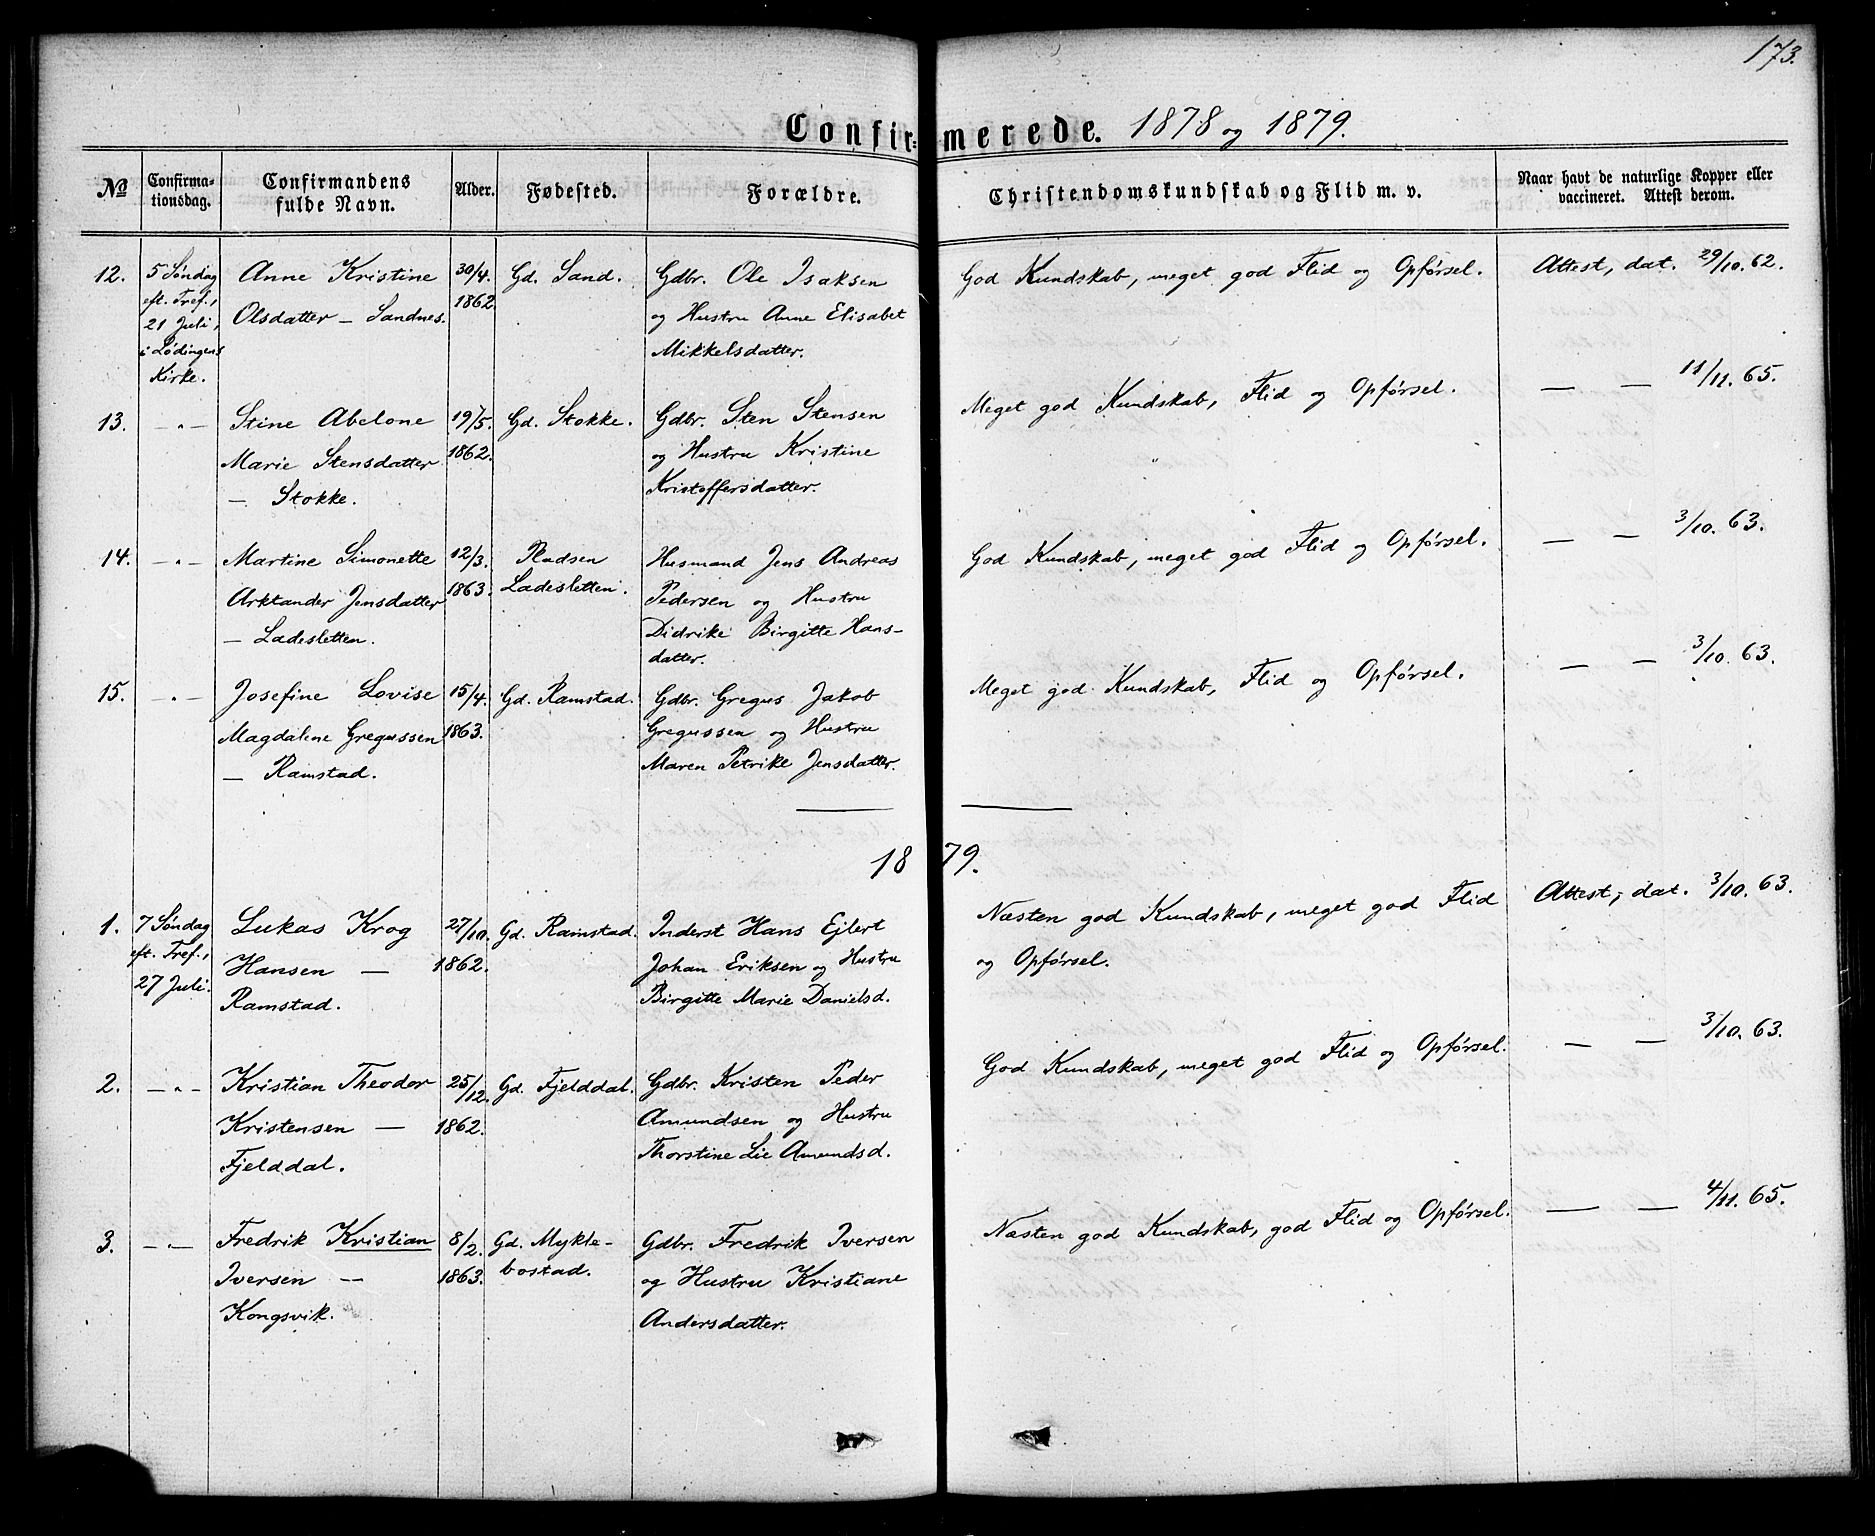 173.
Confir=merede. 1878 og 1879.
No
Confirma-
tionsdag.
Confirmandens
fulde Navn.
Alder.
Fødested.
Forældre.
Christendomskundskab og Flid m. v.
Naar havt de naturlige Kopper eller
vaccineret. Attest derom.
12.
5 Søndag
eft. Tref.,
21 Juli,
i Lødingens
Kirke.
Anne Kristine
Olsdatter — Sandnes.
30/4.
1862.
Gd. Sand.
Gdbr. Ole Isaksen
og Hustru Anne Elisabet
Mikkelsdatter.
God Kundskab, meget god Flid og Opførsel.
Attest, dat. 29/10. 62.
13.
— „ —
Stine Abelone
Marie Stensdatter
— Stokke.
19/5.
1862.
Gd. Stokke.
Gdbr. Sten Stensen
og Hustru Kristine
Kristoffersdatter.
Meget god Kundskab, Flid og Opførsel.
— — 11/11. 65.
14.
— „ —
Martine Simonette
Arktander Jensdatter
— Ladesletten.
12/3.
1863.
Pladsen
Ladesletten.
Husmand Jens Andreas
Pedersen og Hustru
Didrike Birgitte Hans-
datter.
God Kundskab, meget god Flid og Opførsel.
— — 3/10. 63.
15.
— „ —
Josefine Lovise
Magdalene Gregussen
— Ramstad.
15/4.
1863.
Gd. Ramstad.
Gdbr. Gregus Jakob
Gregussen og Hustru
Maren Petrike Jensdatter.
Meget god Kundskab, Flid og Opførsel.
— — 3/10. 63.
1879.
1.
7 Søndag
eft. Tref.,
27 Juli.
Lukas Krog
Hansen —
Ramstad.
27/10.
1862.
Gd. Ramstad.
Inderst Hans Ejlert
Johan Eriksen og Hustru
Birgitte Marie Danielsd.
Næsten god Kundskab, meget god Flid
og Opførsel.
Attest, dat. 3/10. 63.
2.
— „ —
Kristian Theodor
Kristensen —
Fjelddal.
25/12.
1862.
Gd. Fjelddal.
Gdbr. Kristen Peder
Amundsen og Hustru
Thorstine Lie Amundsd.
God Kundskab, meget god Flid og Opførsel.
— — 3/10. 63.
3.
— „ —
Fredrik Kristian
Iversen —
Kongsvik.
8/2.
1863.
Gd. Mykle-
bostad.
Gdbr. Fredrik Iversen
og Hustru Kristiane
Andersdatter.
Næsten god Kundskab, god Flid og Opførsel.
— — 4/11. 65.